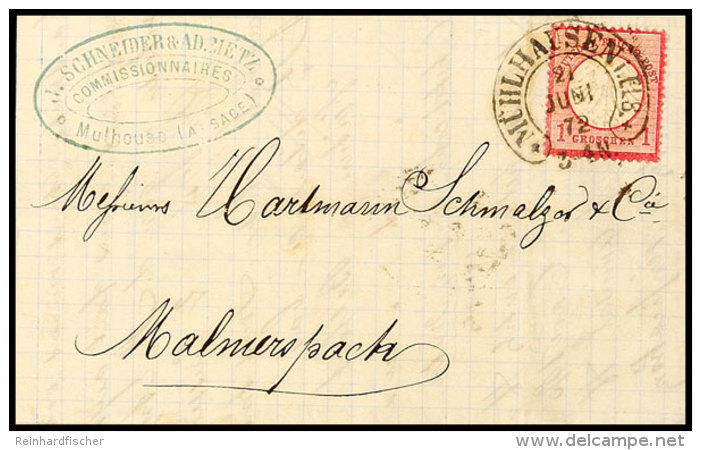 J. SCHNEIDER & AD. METZ
COMMISSIONNAIRES
Mulhouse (ALSACE)
MÜHLHAUSEN i. ELS.
21
JUNI
72
3
1 GROSCHEN 1
Messieurs Hartmann Schmalzer & Cie
Malmerspach
Reinhardfischer
www.delcampe.net